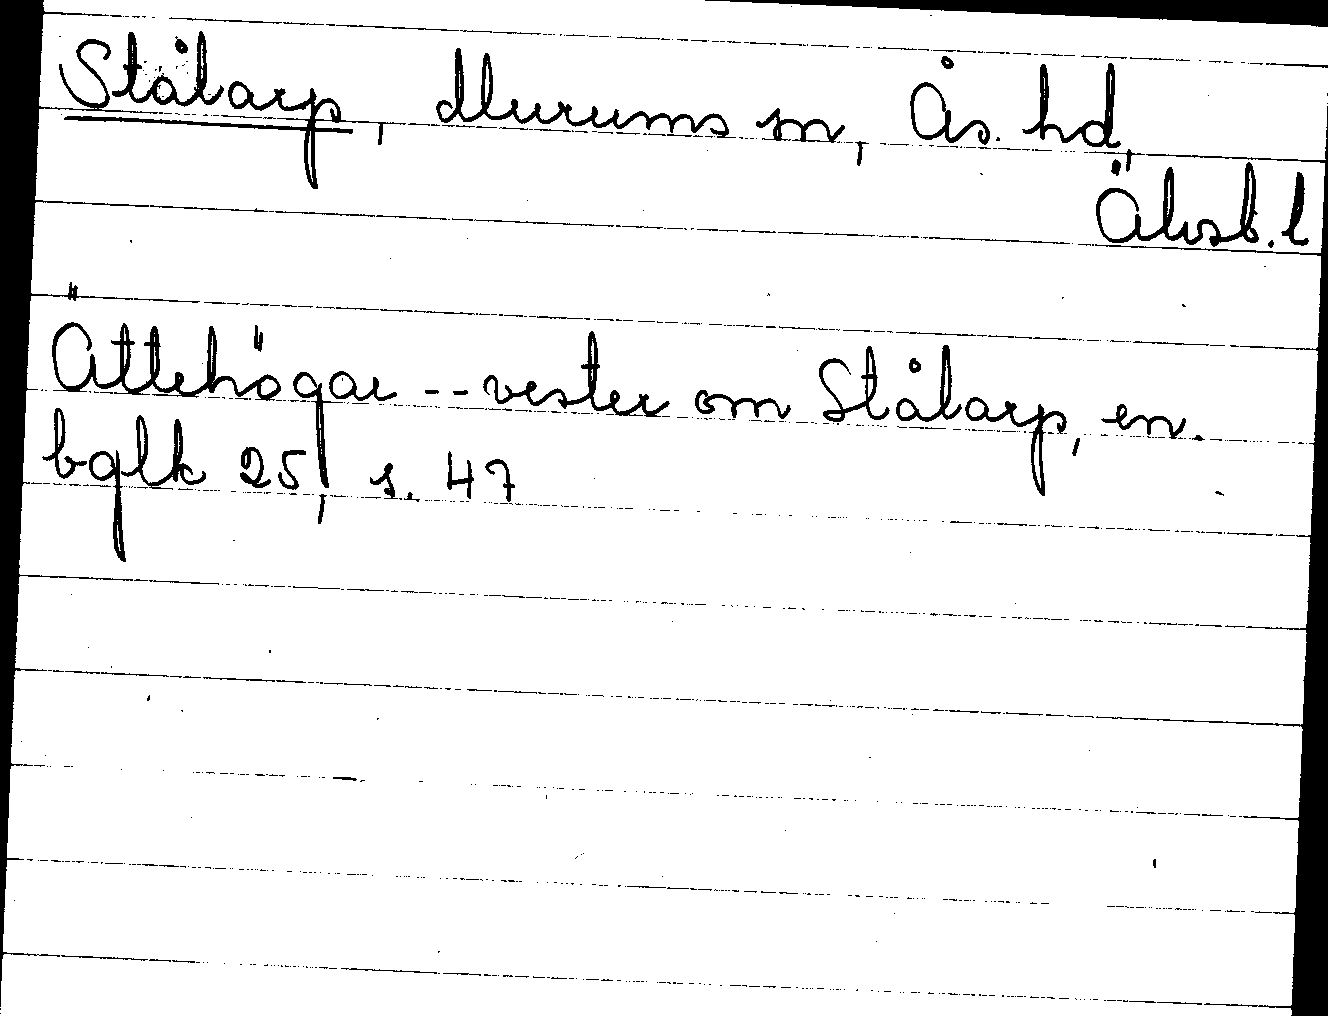 Stålarp, Murums sn, Ås. hd,
Älvsb. l
Ättehögar -- vester om Stålarp, en.
bglk 25, s. 47